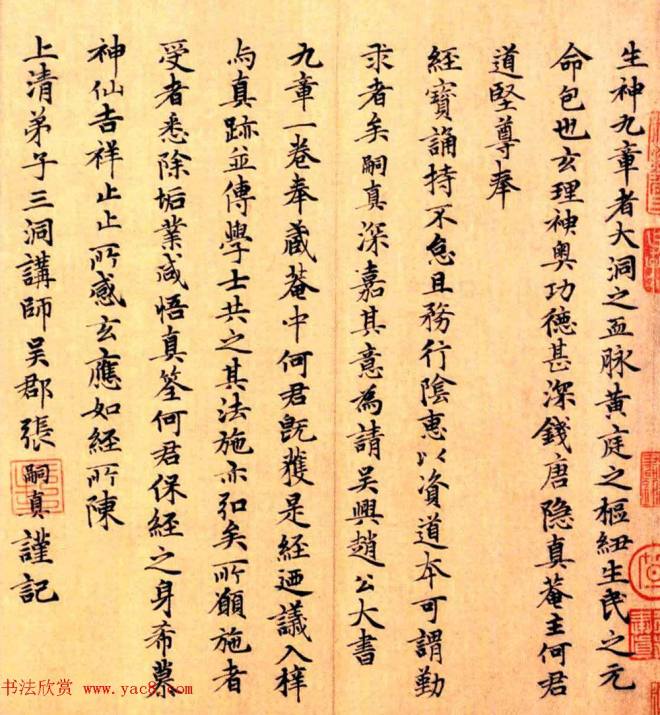 生神九章者大洞之血脉黄庭之樞紐生民之元
命包也玄理神奥功德甚深錢唐隐真菴主何君
道堅尊奉
經寶誦持不怠且務行陰惠以資道本可謂勤
求者矣嗣真深嘉其意為請吴興趙公大書
九章一卷奉藏菴中何君既獲是經迺議入梓
与真跡並傳學士共之其法施亦弘矣所願施者
受者悉除垢業咸悟真筌何君保經之身希慕
神仙吉祥止止所感玄應如經所陳
上清弟子三洞講師吴郡張嗣真謹記
书法欣赏 www.yac8.com